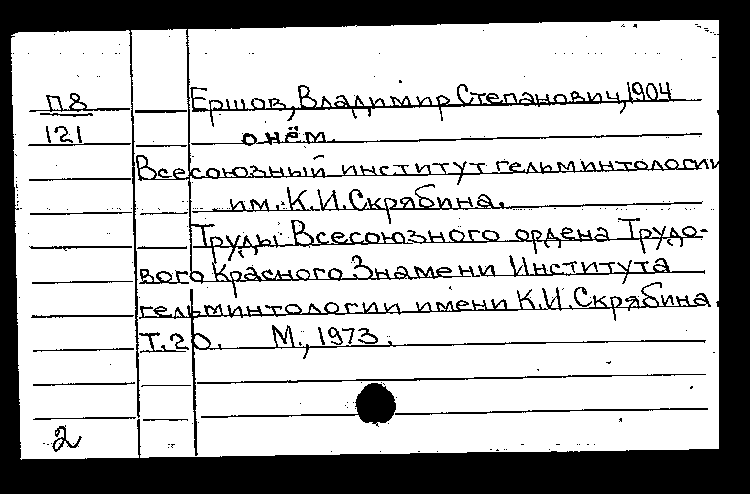 П8 Ершов, Владимир Степанович, 1904
121 о нём.
Всесоюзный институт гельминтологии
им. К.И. Скрябина.
Труды Всесоюзного ордена Трудо-
вого Красного Знамени Института
гельминтологии имени К.И. Скрябина.
Т.20. М., 1973.
2